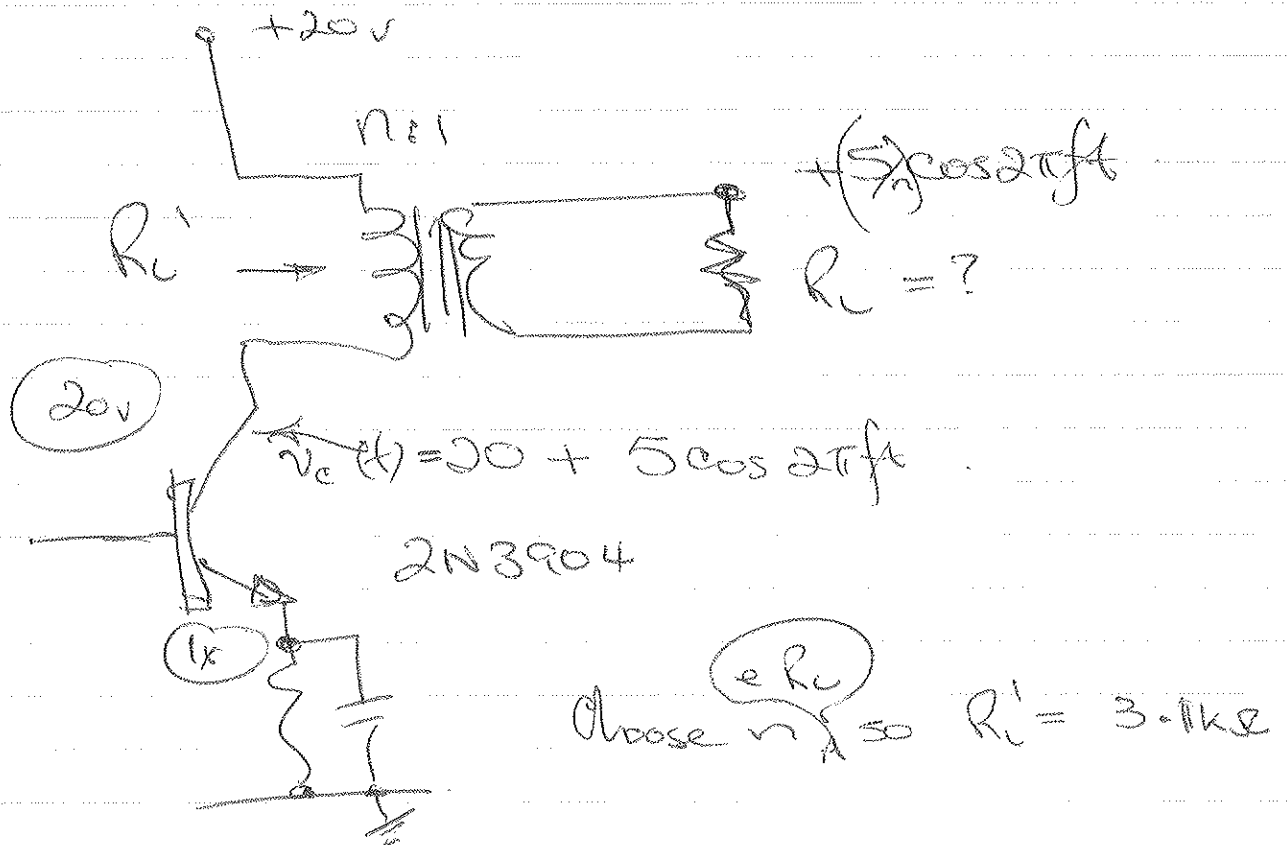 +20v
n:1
+(5/n)cos2πft
R_L' →
R_L = ?
20v
v_c(t) = 20 + 5 cos 2πft.
2N3904
e R_L
Choose n ⁁ so R_L' = 3.1kΩ